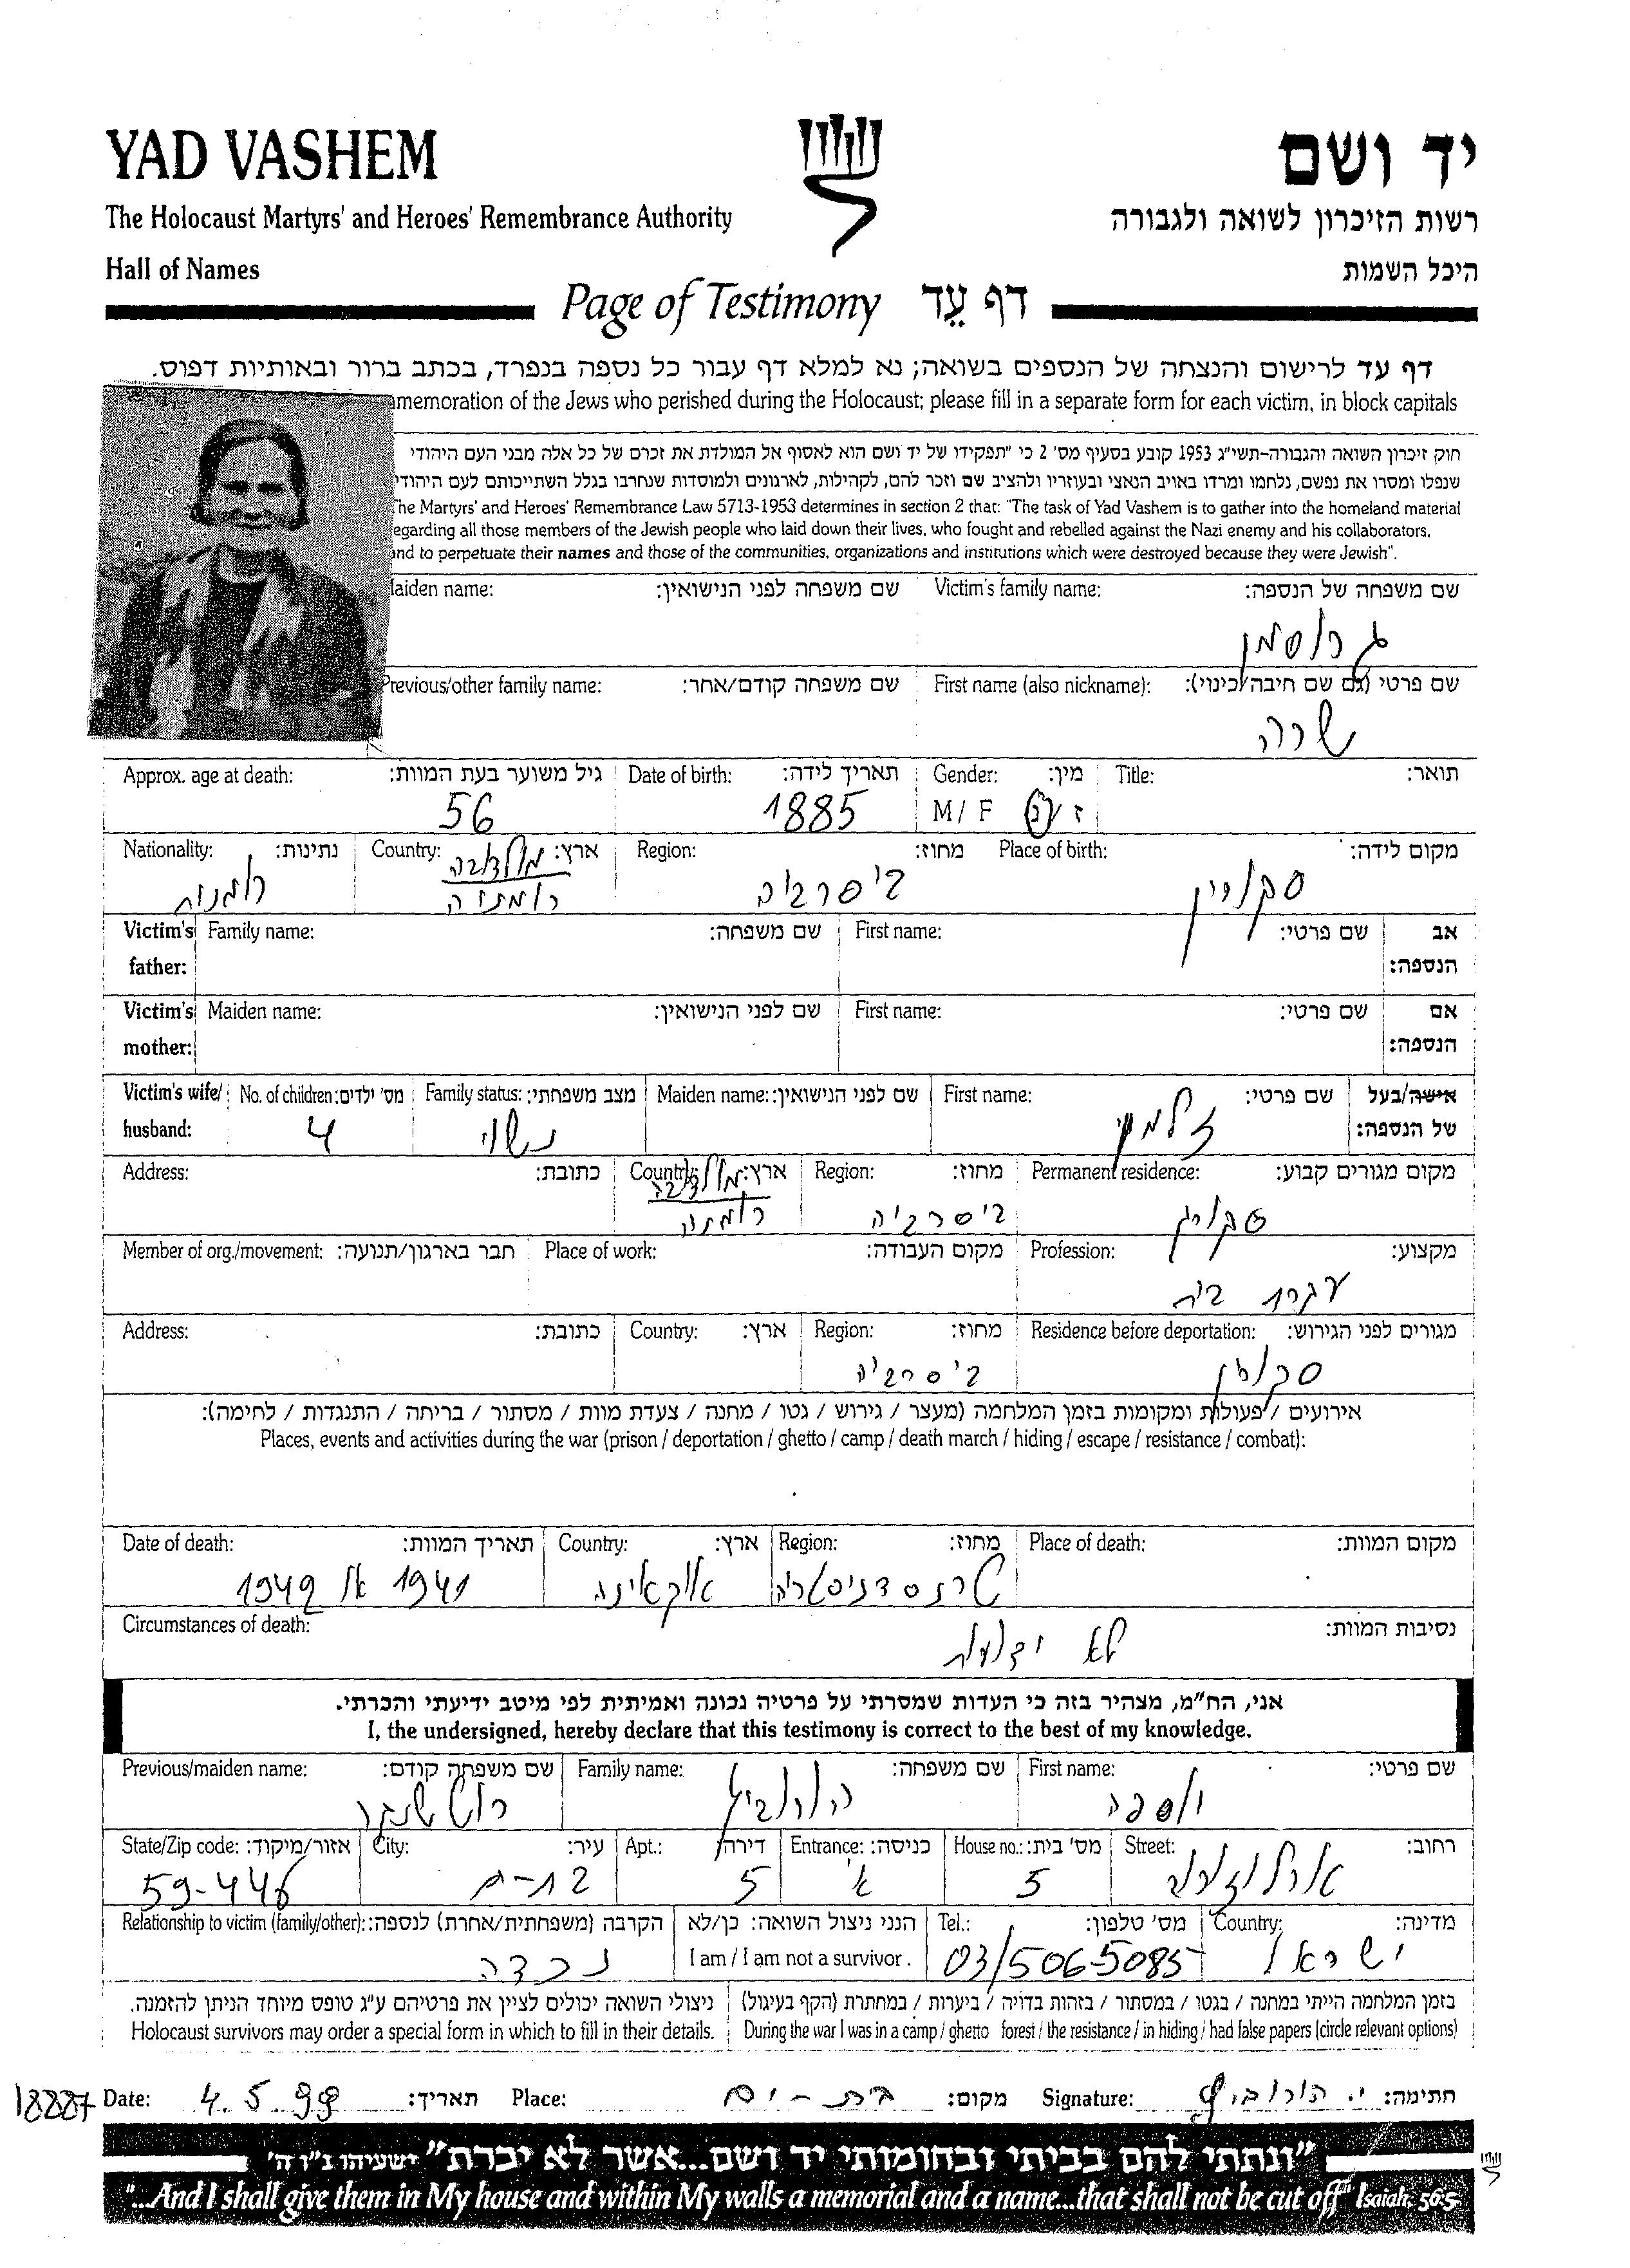 YAD VASHEM
יד ושם
The Holocaust Martyrs' and Heroes' Remembrance Authority
רשות הזיכרון לשואה ולגבורה
Hall of Names
היכל השמות
Page of Testimony דף עֵד
דף עד לרישום והנצחה של הנספים בשואה; נא למלא דף עבור כל נספה בנפרד, בכתב ברור ובאותיות דפוס.
memoration of the Jews who perished during the Holocaust; please fill in a separate form for each victim, in block capitals
חוק זיכרון השואה והגבורה-תשי"ג 1953 קובע בסעיף מס' 2 כי "תפקידו של יד ושם הוא לאסוף אל המולדת את זכרם של כל אלה מבני העם היהודי
שנפלו ומסרו את נפשם, נלחמו ומרדו באויב הנאצי ובעוזריו ולהציב שם וזכר להם, לקהילות, לארגונים ולמוסדות שנחרבו בגלל השתייכותם לעם היהודי
he Martyrs' and Heroes' Remembrance Law 5713-1953 determines in section 2 that: "The task of Yad Vashem is to gather into the homeland material
egarding all those members of the Jewish people who laid down their lives, who fought and rebelled against the Nazi enemy and his collaborators,
nd to perpetuate their names and those of the communities, organizations and institutions which were destroyed because they were Jewish".
שם משפחה של הנספה: Victim's family name: שם משפחה לפני הנישואין: aiden name:
גרוסמן
שם פרטי (גם שם חיבה/כינוי): First name (also nickname): שם משפחה קודם/אחר: Previous/other family name:
שרה
תואר: Title: מין: Gender: תאריך לידה: Date of birth: גיל משוער בעת המוות: Approx. age at death:
ז / נ M / F 1885 56
מקום לידה: Place of birth: מחוז: Region: ארץ: Country: נתינות: Nationality:
סקורין בסרביה מולדובה
רומניה רומנית
אב שם פרטי: First name: שם משפחה: Family name: Victim's
הנספה: father:
אם שם פרטי: First name: שם לפני הנישואין: Maiden name: Victim's
הנספה: mother:
אישה/בעל שם פרטי: First name: שם לפני הנישואין: Maiden name: מצב משפחתי: Family status: מס' ילדים: No. of children: Victim's wife/
של הנספה: זלמן נשוי 4 husband:
מקום מגורים קבוע: Permanent residence: מחוז: Region: ארץ: Country: כתובת: Address:
סקורין ביסרביה מולדובה
רומניה
מקצוע: Profession: מקום העבודה: Place of work: חבר בארגון/תנועה: Member of org./movement:
עקרת בית
מגורים לפני הגירוש: Residence before deportation: מחוז: Region: ארץ: Country: כתובת: Address:
סקורין ביסרביה
אירועים / פעולות ומקומות בזמן המלחמה (מעצר / גירוש / גטו / מחנה / צעדת מוות / מסתור / בריחה / התנגדות / לחימה):
Places, events and activities during the war (prison / deportation / ghetto / camp / death march / hiding / escape / resistance / combat):
מקום המוות: Place of death: מחוז: Region: ארץ: Country: תאריך המוות: Date of death:
טרנסדניסטריה אוקראינה 1941 או 1942
נסיבות המוות: Circumstances of death:
לא ידועות
אני, הח"מ, מצהיר בזה כי העדות שמסרתי על פרטיה נכונה ואמיתית לפי מיטב ידיעתי והכרתי.
I, the undersigned, hereby declare that this testimony is correct to the best of my knowledge.
שם פרטי: First name: שם משפחה: Family name: שם משפחה קודם: Previous/maiden name:
יוספה הורוביץ
רחוב: Street: מס' בית: House no.: כניסה: Entrance: דירה: Apt.: עיר: City: אזור/מיקוד: State/Zip code:
ארלוזורוב 5 א' 5 בת-ים 59-446
מדינה: Country: מס' טלפון: Tel.: הנני ניצול השואה: כן/לא הקרבה (משפחתית/אחרת) לנספה: Relationship to victim (family/other):
ישראל 03/506-5085 I am / I am not a survivor . נכדה
בזמן המלחמה הייתי במחנה / בגטו / במסתור / בזהות בדויה / ביערות / במחתרת (הקף בעיגול) ניצולי השואה יכולים לציין את פרטיהם ע"ג טופס מיוחד הניתן להזמנה.
Holocaust survivors may order a special form in which to fill in their details. During the war I was in a camp / ghetto forest / the resistance / in hiding / had false papers (circle relevant options)
חתימה: י. הורוביץ Signature: מקום: בת-ים Place: תאריך: 4.5.99 Date: 18887
"ונתתי להם בביתי ובחומותי יד ושם...אשר לא יכרת" ישעיהו נ"ו ה'
"...And I shall give them in My house and within My walls a memorial and a name...that shall not be cut off" Isaiah: 56:5